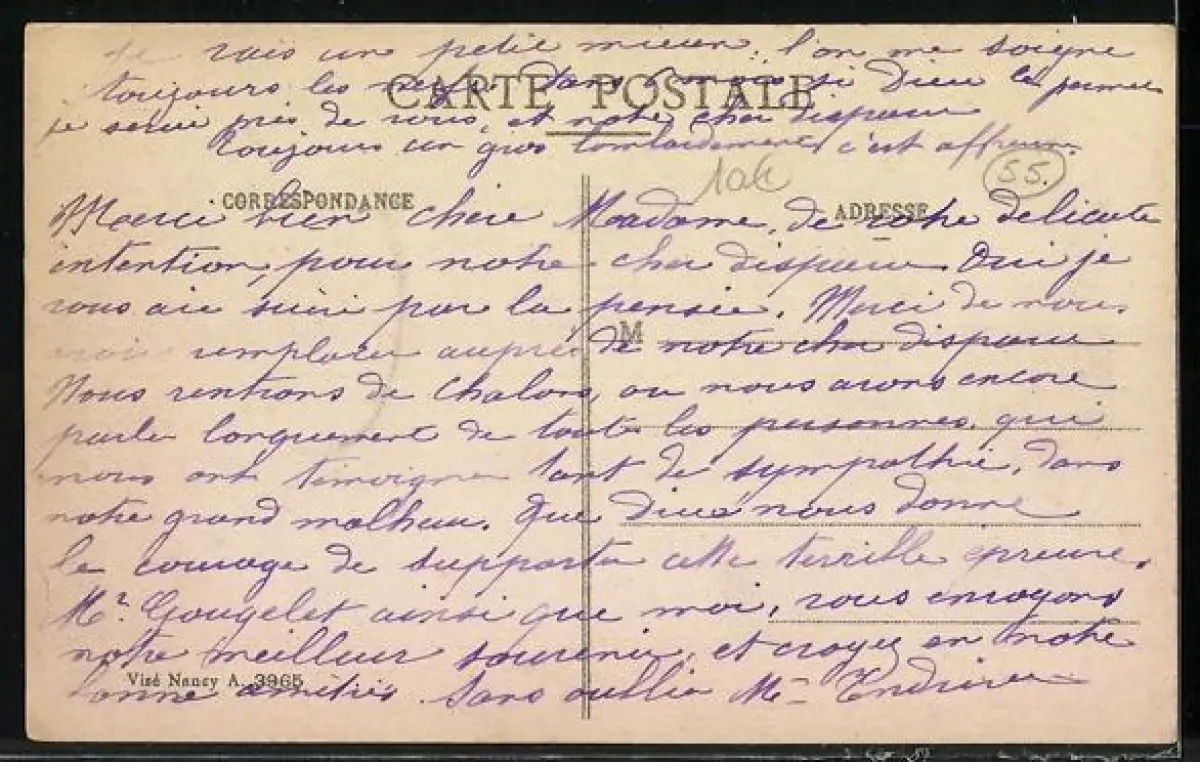 je vais un petit mieux. l'on me soigne
toujours les nerfs. Dans mois si Dieu le permet
CARTE POSTALE
je serai près de vous, et notre cher disparu
Toujours un gros bombardement, c'est affreux.
10k
55.
CORRESPONDANCE
ADRESSE
Merci bien chère Madame, de votre delicate
intention, pour notre cher disparu. Oui je
vous ai suivi par la pensée. Merci de nous
avoir remplacer auprès de notre cher disparu
M
Nous rentrons de Chalons, ou nous avons encore
parler longuement de toutes les personnes, qui
nous ont témoigner tant de sympathie, dans
notre grand malheur. Que Dieu nous donne
le courage de supporter cette terrible épreuve.
Mr. Gougelet ainsi que moi, vous envoyons
notre meilleur souvenir, et croyez en notre
Visé Nancy A. 3965
bonne amitiés. Sans oublier Mr